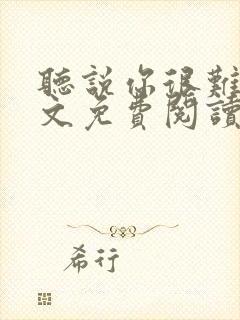 聽說你很難
文免費閱讀
希行